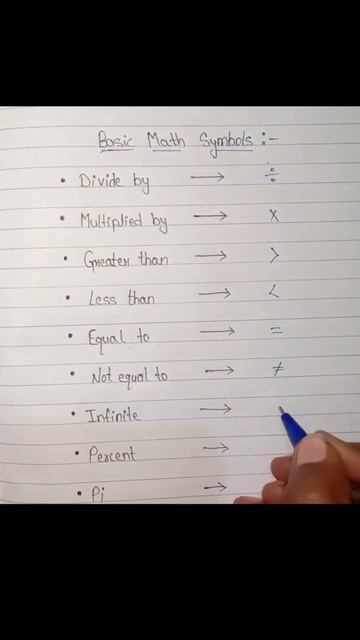 Basic Math Symbols :-
• Divide by → ÷
• Multiplied by → ×
• Greater than → >
• Less than → <
• Equal to → =
• Not equal to → ≠
• Infinite →
• Percent →
• Pi →